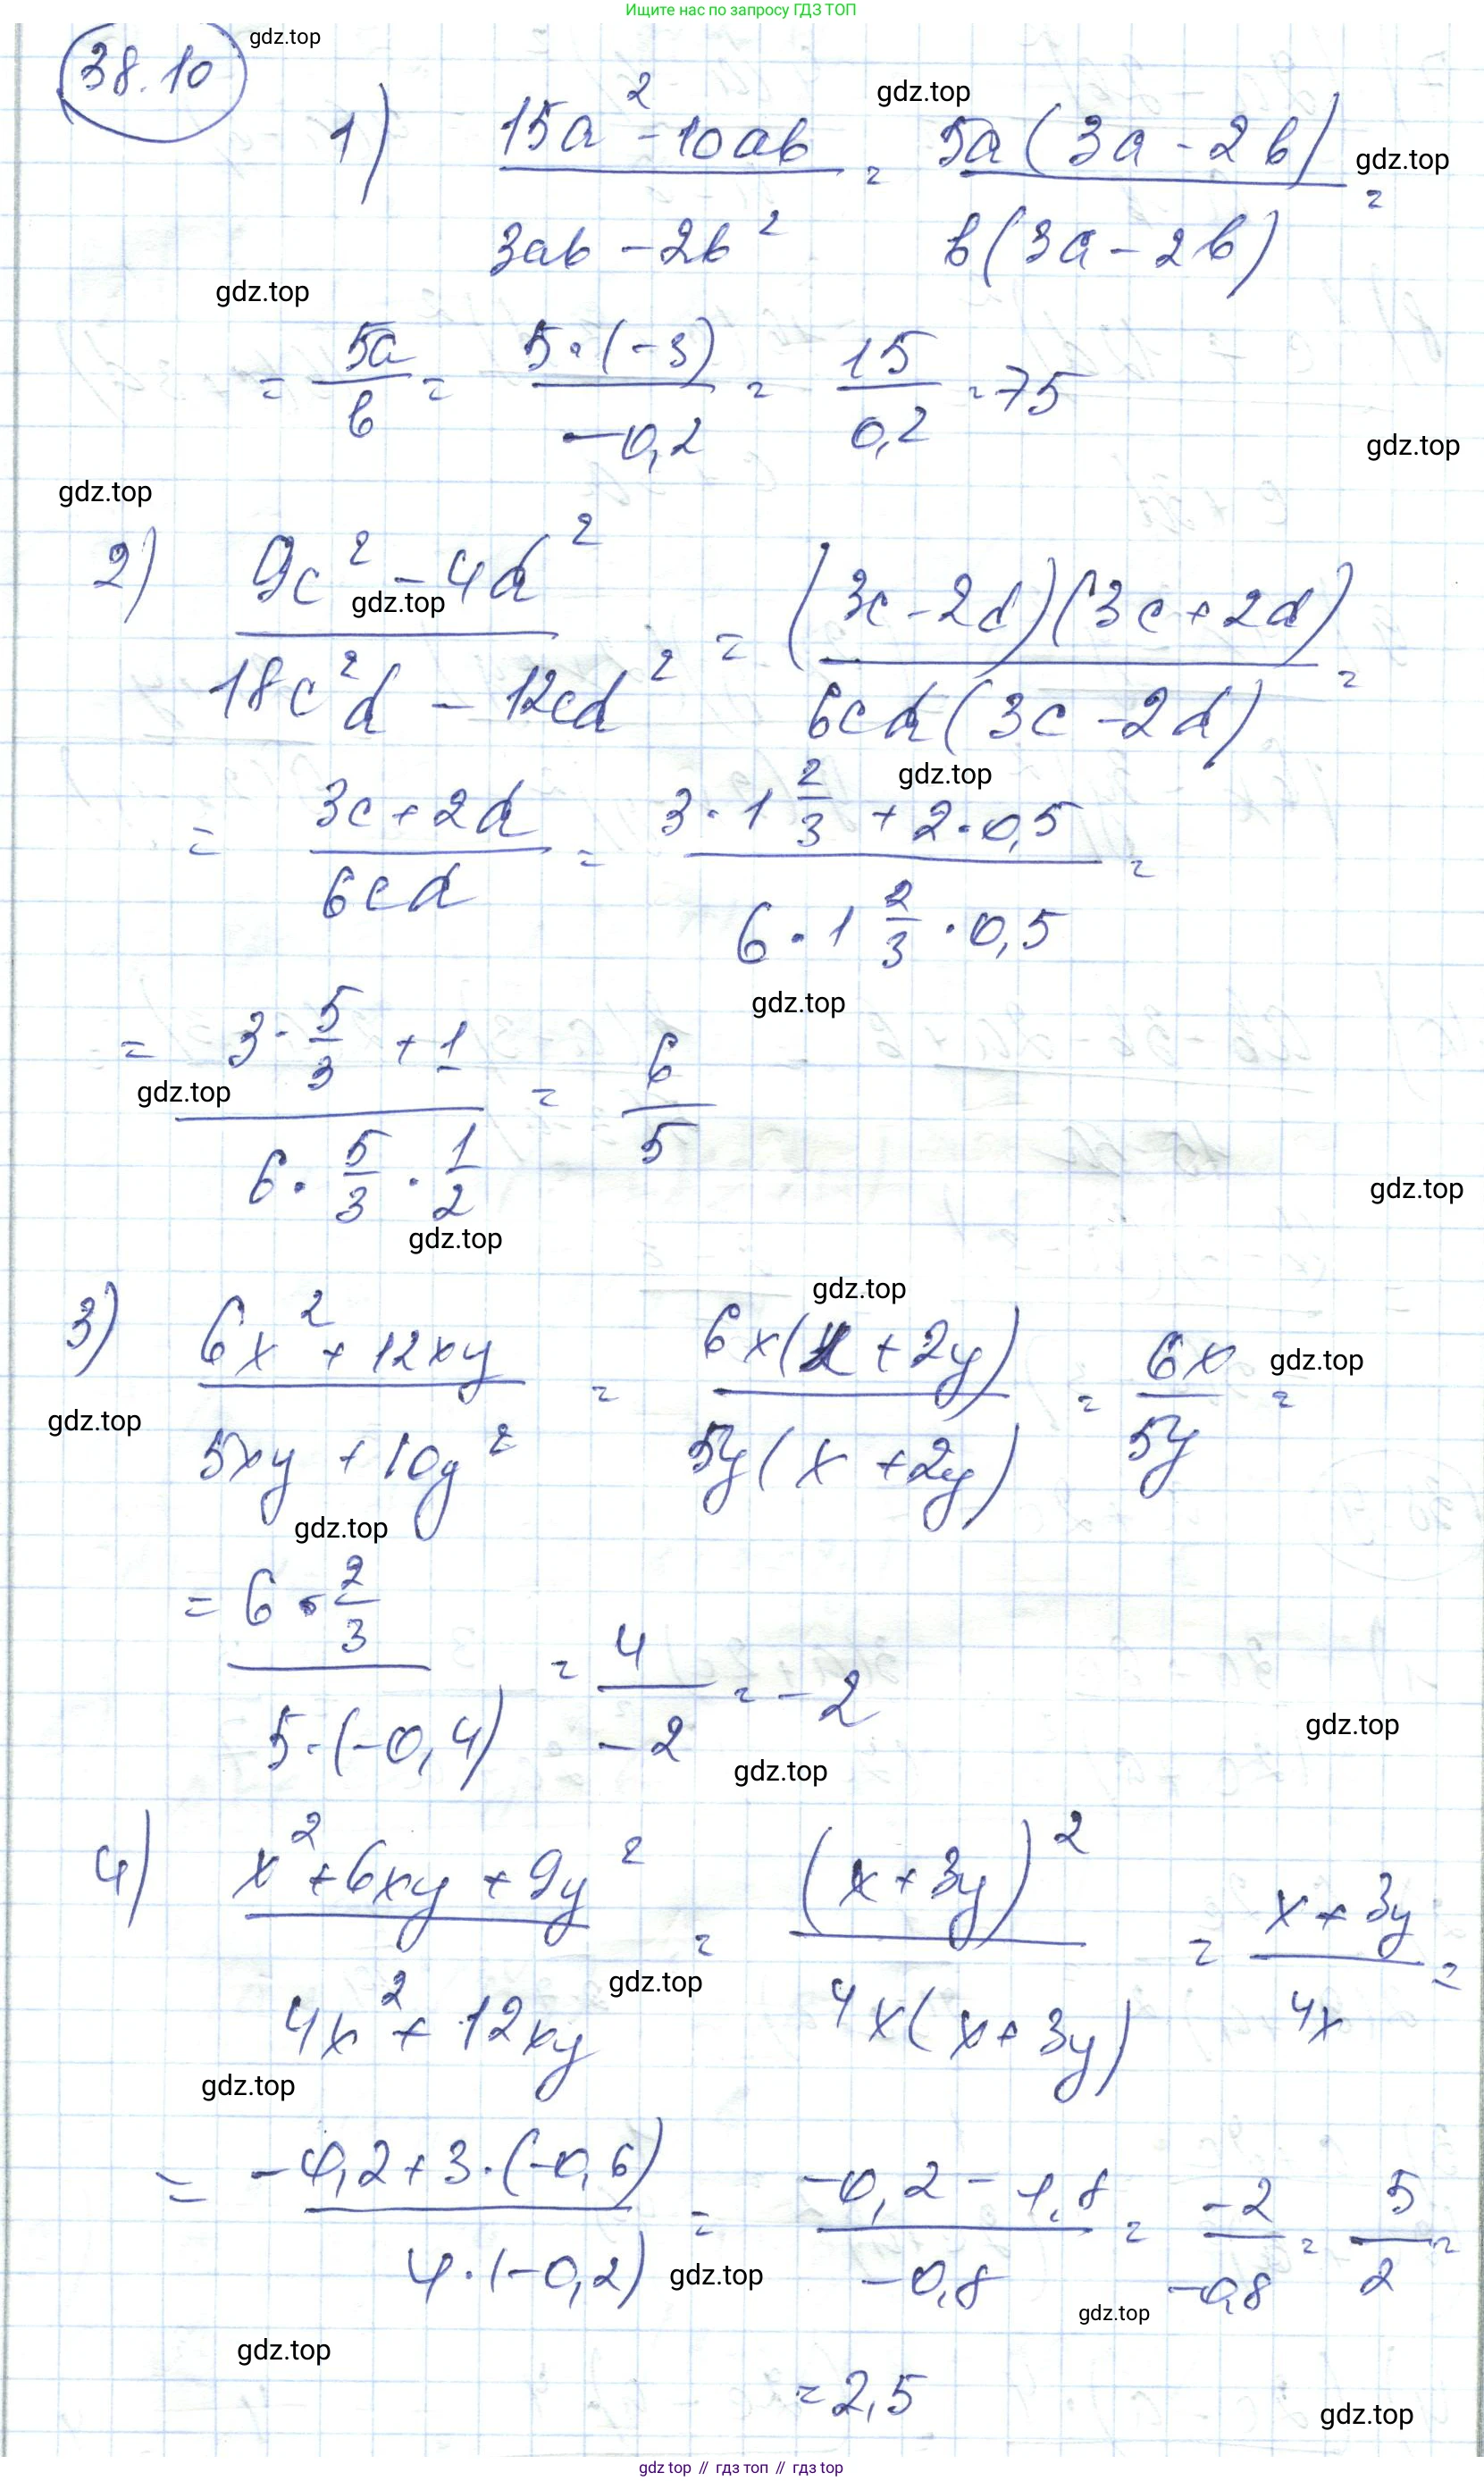 Ищите нас по запросу ГДЗ ТОП
38.10 gdz.top
1) (15a² - 10ab)/(3ab - 2b²) = 5a(3a - 2b)/b(3a - 2b) =
gdz.top
gdz.top
gdz.top
= 5a/b = 5·(-3)/-0,2 = 15/0,2 = 75
gdz.top
gdz.top
2) (9c² - 4d²)/(18c²d - 12cd²) = (3c - 2d)(3c + 2d)/6cd(3c - 2d) =
gdz.top
gdz.top
= (3c + 2d)/6cd = (3·1 2/3 + 2·0,5)/(6·1 2/3·0,5) =
gdz.top
= (3·5/3 + 1)/(6·5/3·1/2) = 6/5
gdz.top
gdz.top
gdz.top
gdz.top
3) (6x² + 12xy)/(5xy + 10y²) = 6x(x + 2y)/5y(x + 2y) = 6x/5y =
gdz.top
gdz.top
gdz.top
= 6·2/3/5·(-0,4) = 4/-2 = -2
gdz.top
gdz.top
4) (x² + 6xy + 9y²)/(4x² + 12xy) = (x + 3y)²/4x(x + 3y) = (x + 3y)/4x =
gdz.top
gdz.top
= (-0,2 + 3·(-0,6))/4·(-0,2) = (-0,2 - 1,8)/-0,8 = -2/-0,8 = 5/2 =
gdz.top
gdz.top
gdz.top
= 2,5
gdz.top
gdz top // гдз топ // gdz top